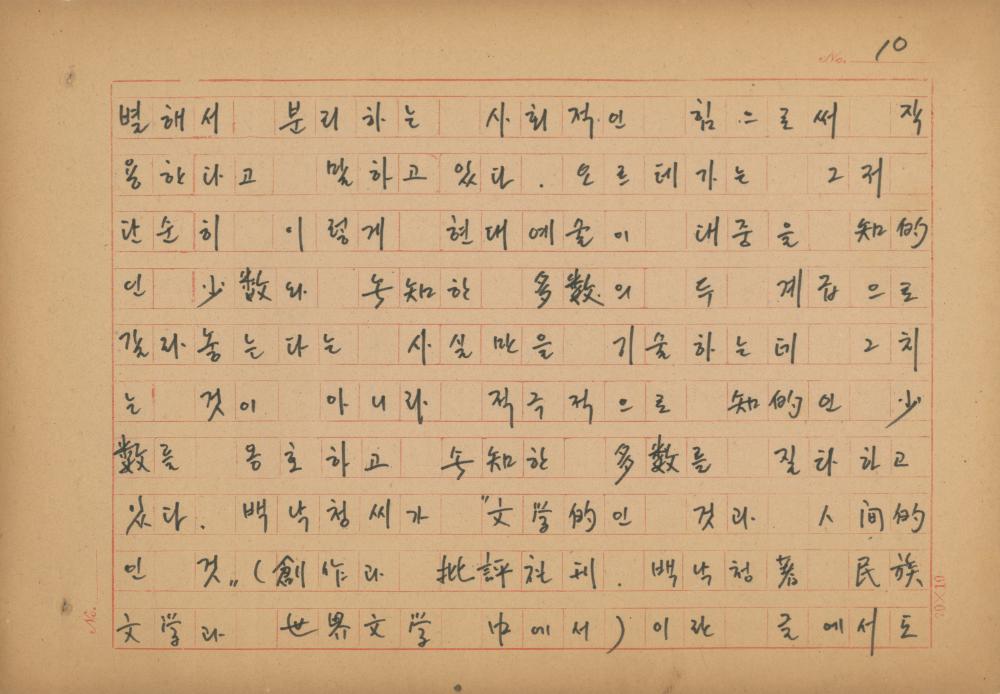 No. 10
별해서 분리하는 사회적인 힘으로써 작
용한다고 말하고 있다. 오르테가는 그저
단순히 이렇게 현대예술이 대중을 知的
인 少數와 無知한 多數의 두 계급으로
갈라놓는다는 사실만을 기술하는데 그치
는 것이 아니라 적극적으로 知的인 少
數를 옹호하고 無知한 多數를 질타하고
있다. 백낙청씨가 "文学的인 것과 人间的
인 것" (創作과 批評 백낙청著 民族
文学과 世界文学 中에서) 이란 글에서도
No.
20×10